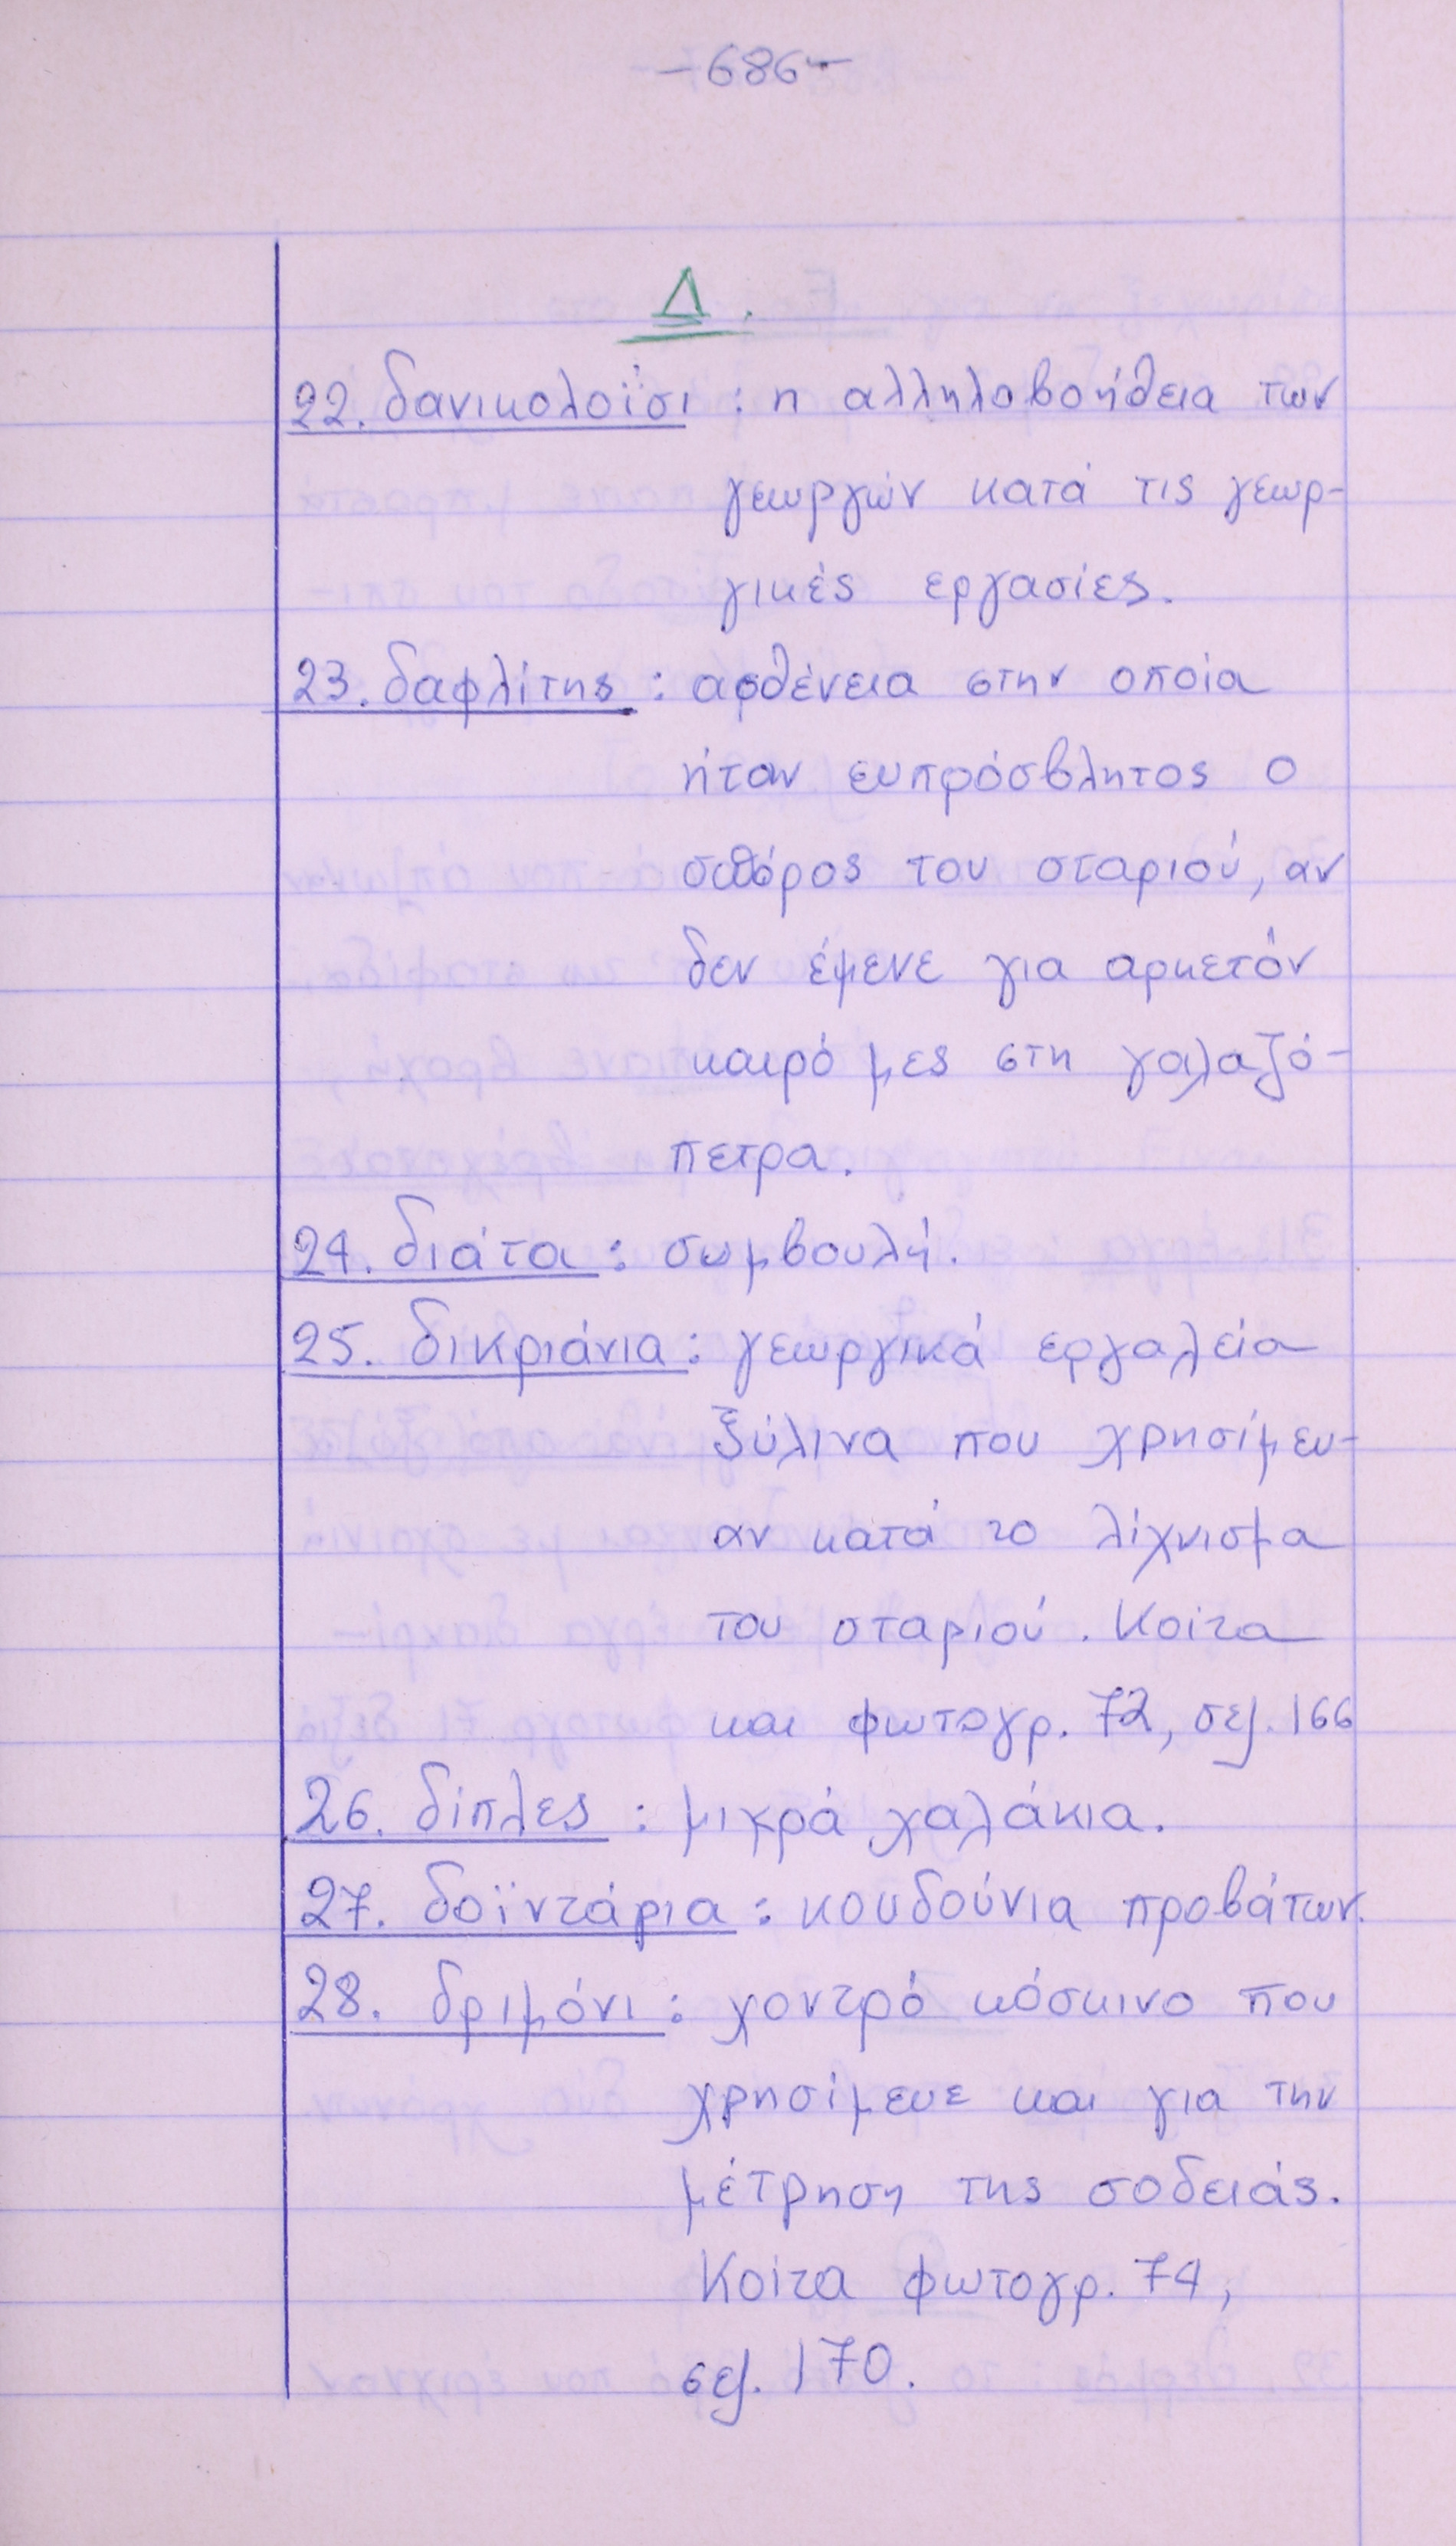 -686-
Δ.
22. δανικολοΐσι : η αλληλοβοήθεια των
γεωργών κατά τις γεωρ-
γικές εργασίες.
23. δαφλίτης : ασθένεια στην οποία
ήταν ευπρόσβλητος ο
σπόρος του σταριού, αν
δεν έμενε για αρκετόν
καιρό μες στη γαλαζό-
πετρα.
24. διάτα : συμβουλή.
25. δικριάνια : γεωργικά εργαλεία
ξύλινα που χρησίμευ-
αν κατά το λίχνισμα
του σταριού. Κοίτα
και φωτογρ. 72, σελ. 166
26. δίπλες : μικρά χαλάκια.
27. δοϊντάρια : κουδούνια προβάτων.
28. δριμόνι : χοντρό κόσκινο που
χρησίμευε και για την
μέτρηση της σοδειάς.
Κοίτα φωτογρ. 74,
σελ. 170.